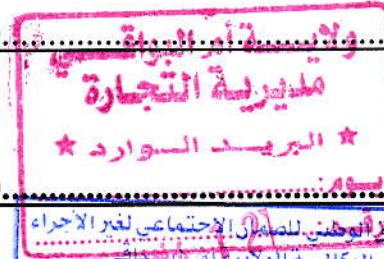 ولايـــة أم البواقـــي
مديرية التجارة
★ البريـــد الـــوارد ★
يـــوم:
الوطني للضمان الاجتماعي لغير الأجراء